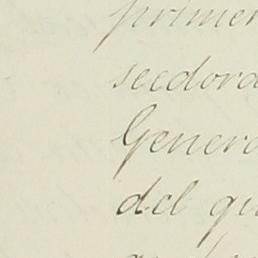 primer
seedora
Genera
del qu